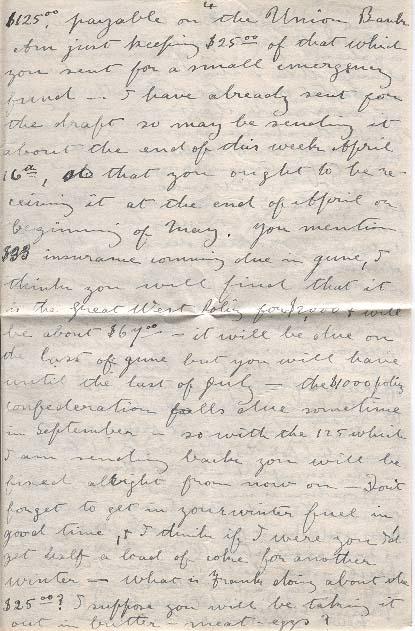 4
$125.00 payable on the Union Bank
Am just keeping $25.00 of that which
you sent for a small emergency
fund — I have already sent for
the draft so may be sending it
about the end of this week April
16th, so that you ought to be re-
ceiving it at the end of April or
beginning of May. You mention
insurance comming due in June, I
think you will find that it
is the Great West Policy for $2000 & will
be about $67.00 — it will be due on
the last of June but you will have
until the last of July — the $1000 policy
confederation falls due sometime
in September — so with the 125 which
I am sending back you will be
fixed allright from now on — Don't
forget to get in your winter fuel in
good time, & I think if I were you I'd
get half a load of coke for another
winter — what is Frank doing about the
$25.00? I suppose you will be taking it
out in butter - meat - eggs?